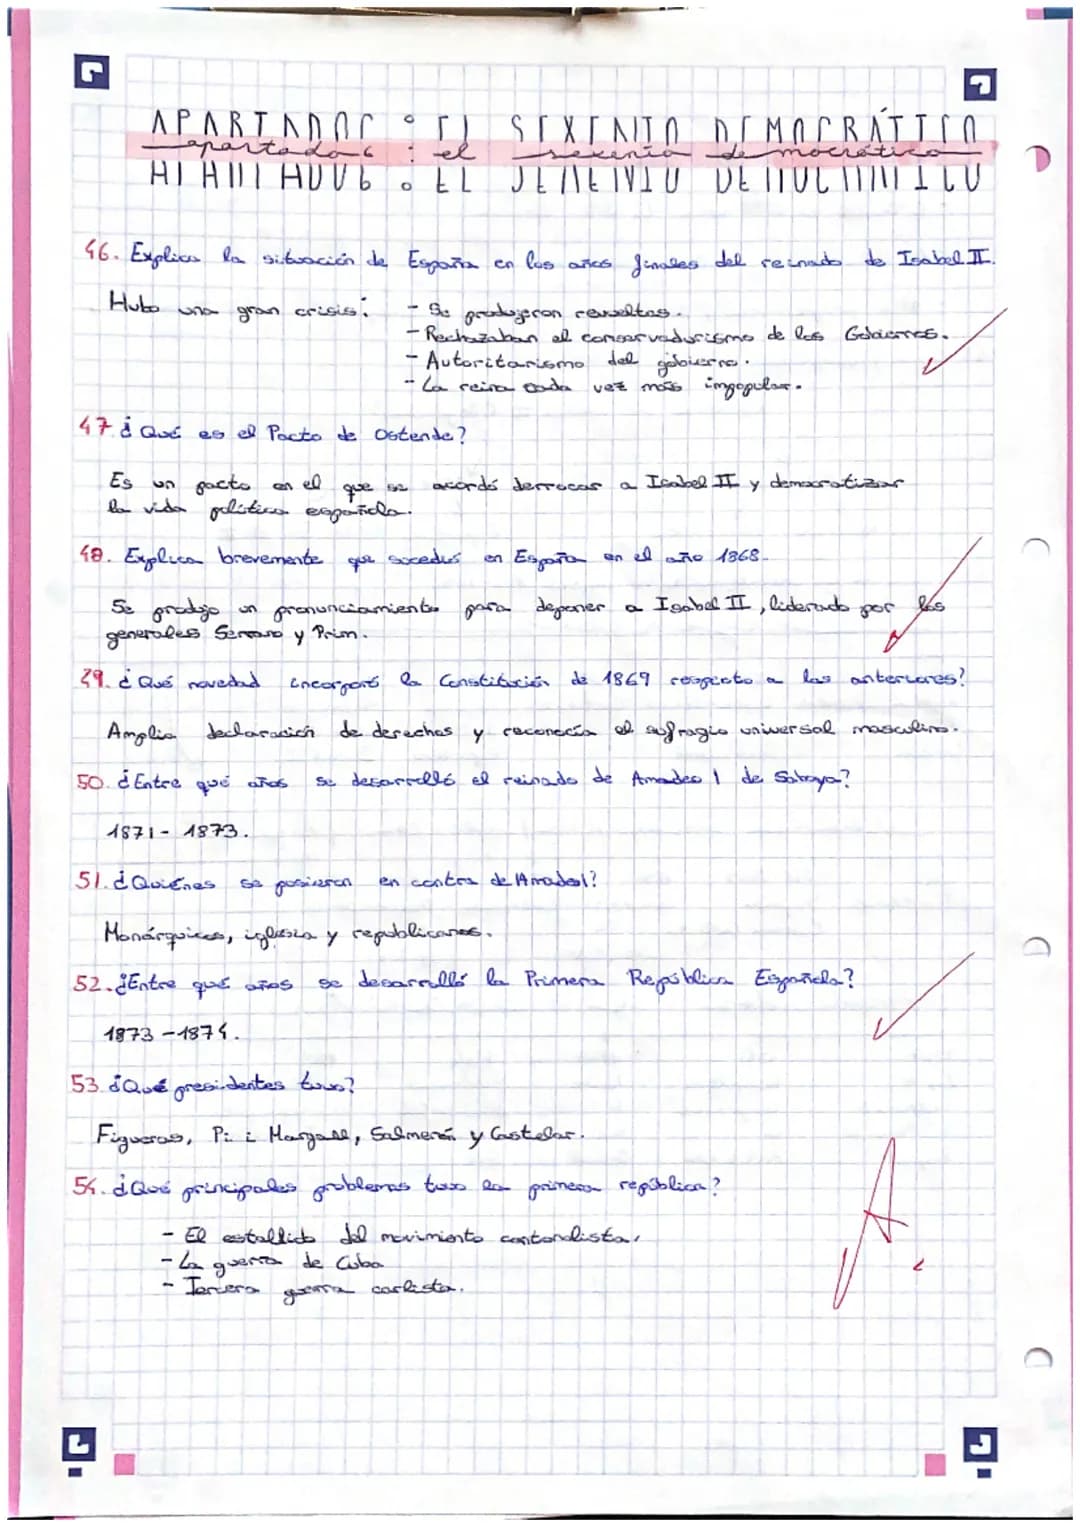 APARTADO 6 : EL SEXENIO DEMOCRÁTICO
apartado 6 : el sexenio democrático
46. Explica la situación de España en los años finales del reinado de Isabel II.
Hubo una gran crisis: - Se produjeron revueltas.
- Rechazaban el conservadurismo de los Gobiernos.
- Autoritarismo del gobierno.
- La reina cada vez más impopular.
47. ¿Qué es el Pacto de Ostende?
Es un pacto en el que se acordó derrocar a Isabel II y democratizar
la vida política española.
48. Explica brevemente que sucedió en España en el año 1868.
Se produjo un pronunciamiento para deponer a Isabel II, liderado por los
generales Serrano y Prim.
49. ¿Qué novedad incorporó la Constitución de 1869 respecto a las anteriores?
Amplia declaración de derechos y reconocía el sufragio universal masculino.
50. ¿Entre qué años se desarrolló el reinado de Amadeo I de Saboya?
1871 - 1873.
51. ¿Quiénes se pusieron en contra de Amadeo I?
Monárquicos, iglesia y republicanos.
52. ¿Entre qué años se desarrolló la Primera República Española?
1873 - 1874.
53. ¿Qué presidentes tuvo?
Figueras, Pi i Margall, Salmerón y Castelar.
54. ¿Qué principales problemas tuvo la primera república?
- El estallido del movimiento cantonalista.
- La guerra de Cuba
- Tercera guerra carlista.